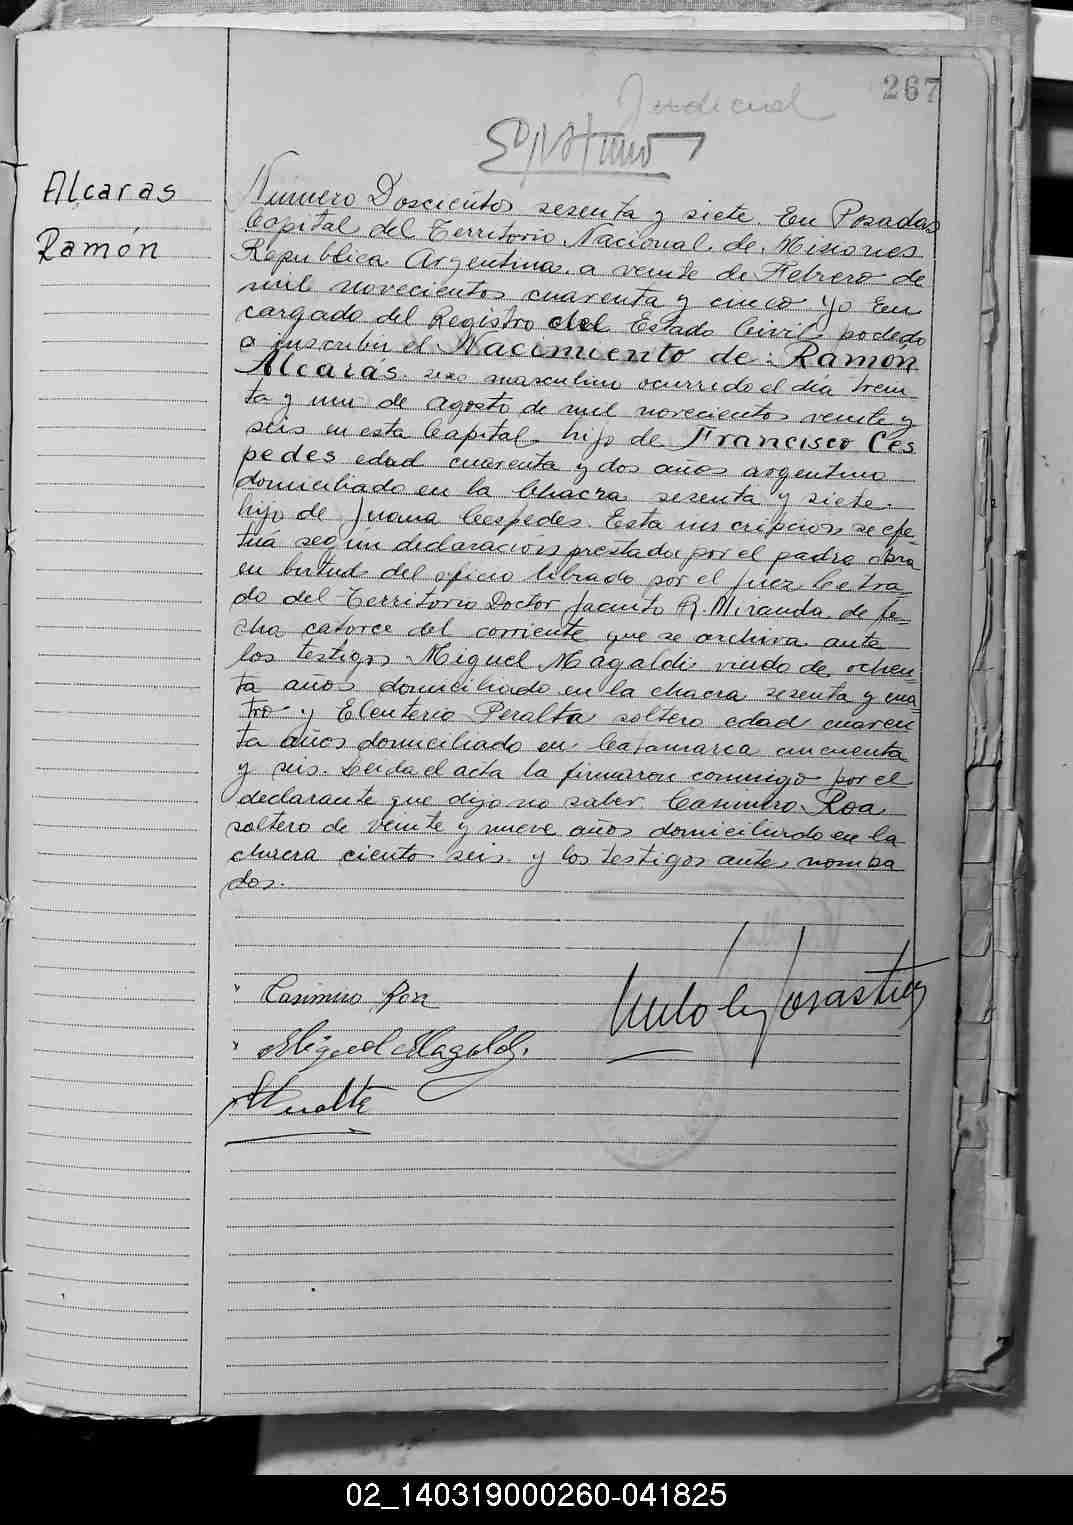 267
Judicial
Alcaras
Ramón
Número Doscientos sesenta y siete. En Posadas
Capital del Territorio Nacional de Misiones
Republica Argentina a veinte de Febrero de
mil novecientos cuarenta y cinco Yo En
cargado del Registro del Estado Civil procedo
a inscribir el Nacimiento de: Ramón
Alcarás. sexo masculino ocurrido el día trein-
ta y uno de agosto de mil novecientos veinte y
seis en esta Capital, hijo de Francisco Ces
pedes edad cuarenta y dos años argentino
domiciliado en la Chacra sesenta y siete.
hijo de Juana Cespedes. Esta inscripcion se efe-
tua segun declaración prestada por el padre obra
en birtud del oficio librado por el Juez Letra-
do del Territorio Doctor Jacinto R. Miranda de fe-
cha catorce del corriente que se archiva ante
los testigos Miguel Magaldi viudo de ochen-
ta años domiciliado en la chacra sesenta y cua-
tro y Eleuterio Peralta soltero edad cuaren
ta años domiciliado en Catamarca cincuenta
y seis. Leida el acta la firmaron conmigo por el
declarante que dijo no saber Casimiro Roa
soltero de veinte y nueve años domiciliado en la
chacra ciento seis y los testigos antes nombra
dos.
Casimiro Roa
Miguel Magaldi.
Peralta
02_140319000260-041825